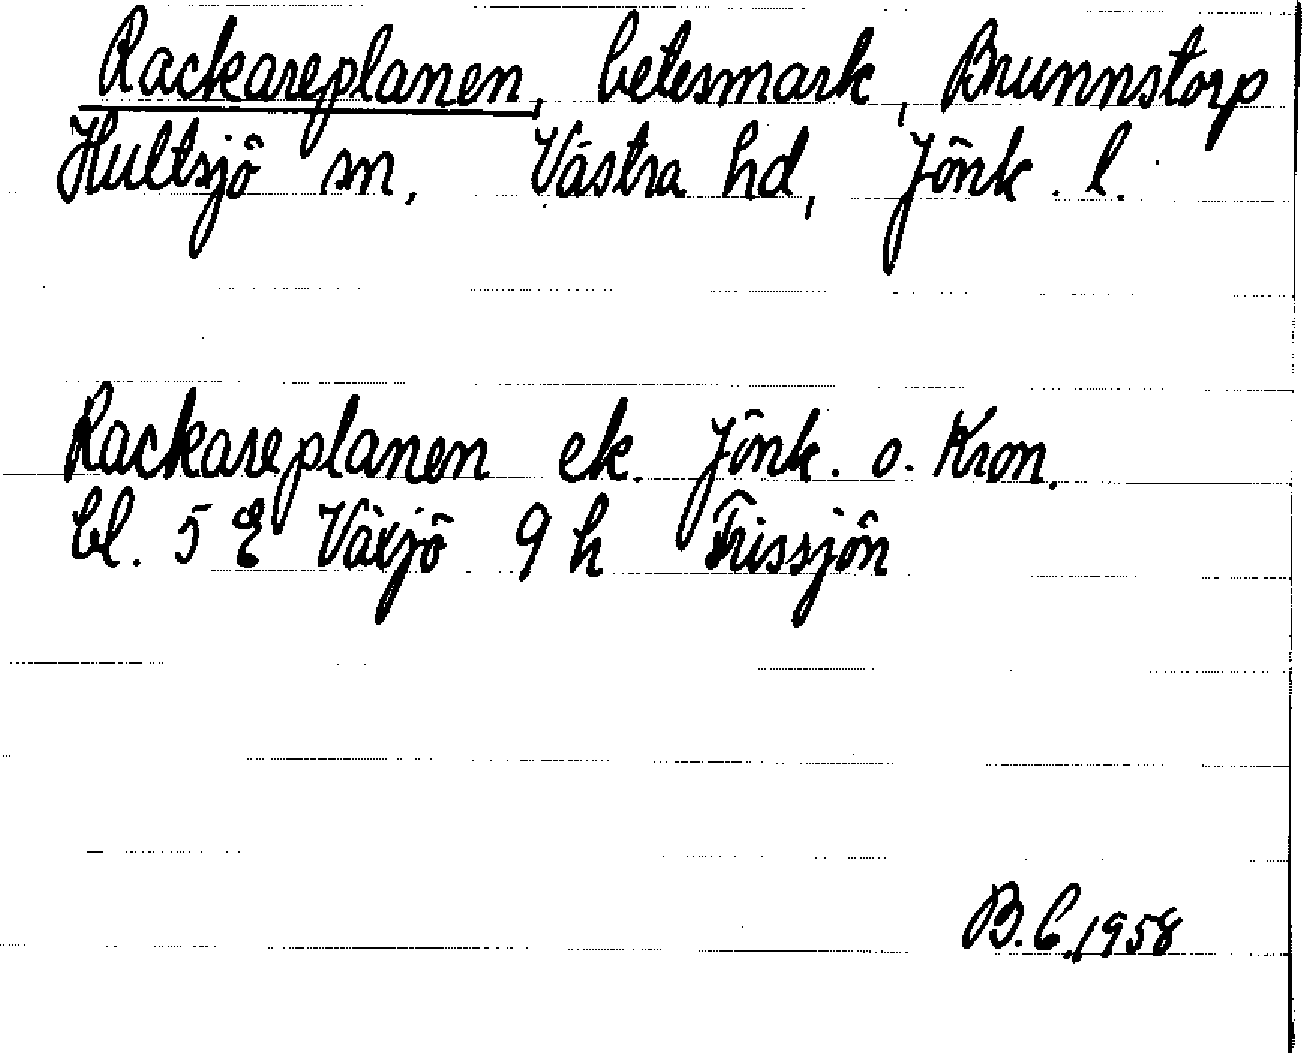 Rackareplanen, betesmark, Brunnstorp
Hultsjö sn, Västra hd, Jönk. l.
Rackareplanen ek. Jönk. o. Kron.
bl. 5 E Växjö 9 h Frissjön
B.C. 1958